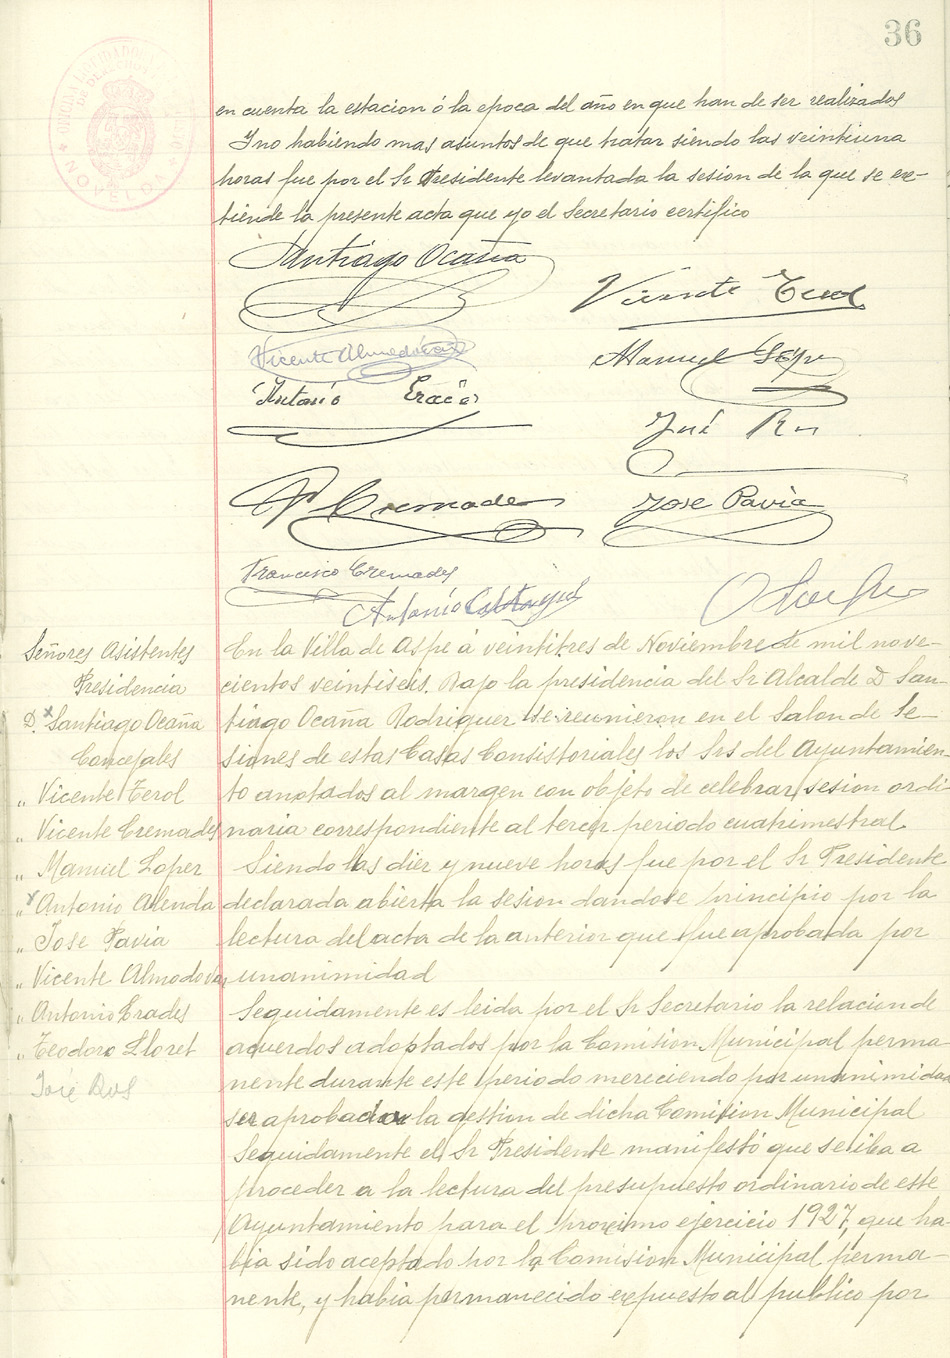 36
en cuenta la estacion ó la epoca del año en que han de ser realizados
Y no habiendo mas asuntos de que tratar siendo las veintiuna
horas fue por el Sr Presidente levantada la sesion de la que se ex-
tiende la presente acta que yo el Secretario certifico
Santiago Ocaña
Vicente Terol
Vicente Almodóvar
Manuel López
Antonio Erades
José Rus
Cremades
Jose Pavia
Francisco Cremades
Antonio
Señores Asistentes
Presidencia
D. Santiago Ocaña
Concejales
" Vicente Terol
" Vicente Cremades
" Manuel Lopez
" Antonio Alenda
" Jose Pavia
" Vicente Almodovar
" Antonio Erades
" Teodoro Lloret
José Rus
En la Villa de Aspe á veintitres de Noviembre de mil nove-
cientos veintiseis. Bajo la presidencia del Sr Alcalde D San-
tiago Ocaña Rodriguez se reunieron en el Salon de Se-
siones de estas Casas Consistoriales los Srs del Ayuntamien-
to anotados al margen con objeto de celebrar sesion ordi-
naria correspondiente al tercer periodo cuatrimestral
Siendo las diez y nueve horas fue por el Sr Presidente
declarada abierta la sesion dandose principio por la
lectura del acta de la anterior que fue aprobada por
unanimidad
Seguidamente es leida por el Sr Secretario la relacion de
acuerdos adoptados por la Comision Municipal perma-
nente durante este periodo mereciendo por unanimidad
ser aprobada la gestion de dicha Comision Municipal
Seguidamente el Sr Presidente manifestó que se iba a
proceder a la lectura del presupuesto ordinario de este
Ayuntamiento para el proximo ejercicio 1927, que ha-
bia sido aceptado por la Comision Municipal perma-
nente, y habia permanecido expuesto al publico por